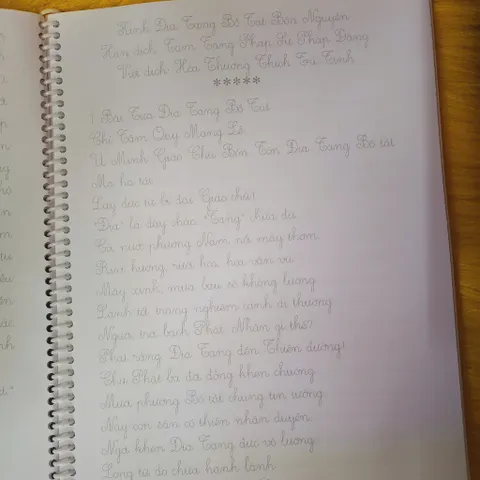 Kinh Địa Tạng Bồ Tát Bổn Nguyện
Hán dịch: Tam Tạng Pháp Sư Pháp Đăng
Việt dịch: Hòa Thượng Thích Trí Tịnh
*****
1. Bài Tựa Địa Tạng Bồ Tát
Chí Tâm Quy Mạng Lễ
U Minh Giáo Chủ Bổn Tôn Địa Tạng Bồ tát
Ma ha tát
Lạy đức từ bi đại Giáo chủ!
"Địa" là dày chắc, "Tạng" chứa đủ.
Cõi nước phương Nam nổi mây thơm
Rưới hương, rưới hoa, hoa vần vũ
Mây xinh, mưa báu số không lường
Lành tốt, trang nghiêm cảnh dị thường
Người trời bạch Phật: Nhân gì thế?
Phật rằng: Địa Tạng đến Thiên đường!
Chư Phật ba đời đồng khen chuộng
Mười phương Bồ tát chung tin tưởng
Nay con sẵn có thiện nhân duyên
Ngợi khen Địa Tạng đức vô lượng
Lòng từ do chứa hạnh lành